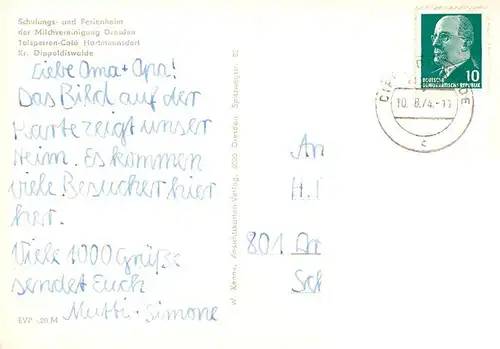 Schulungs- und Ferienheim
der Milchvereinigung Dresden
Talsperren-Café Hartmannsdorf
Kr. Dippoldiswalde
Liebe Oma + Opa!
Das Bild auf der
Karte zeigt unser
Heim. Es kommen
viele Besucher hier
her.
Viele 1000 Grüße
sendet Euch
Mutti + Simone
EVP -,20 M
W. Kenne, Ansichtskarten-Verlag, 8020 Dresden, Spitzwegstr.
10
DEUTSCHE
DEMOKRATISCHE REPUBLIK
10. 8. 74.-11
c
An
H.
801